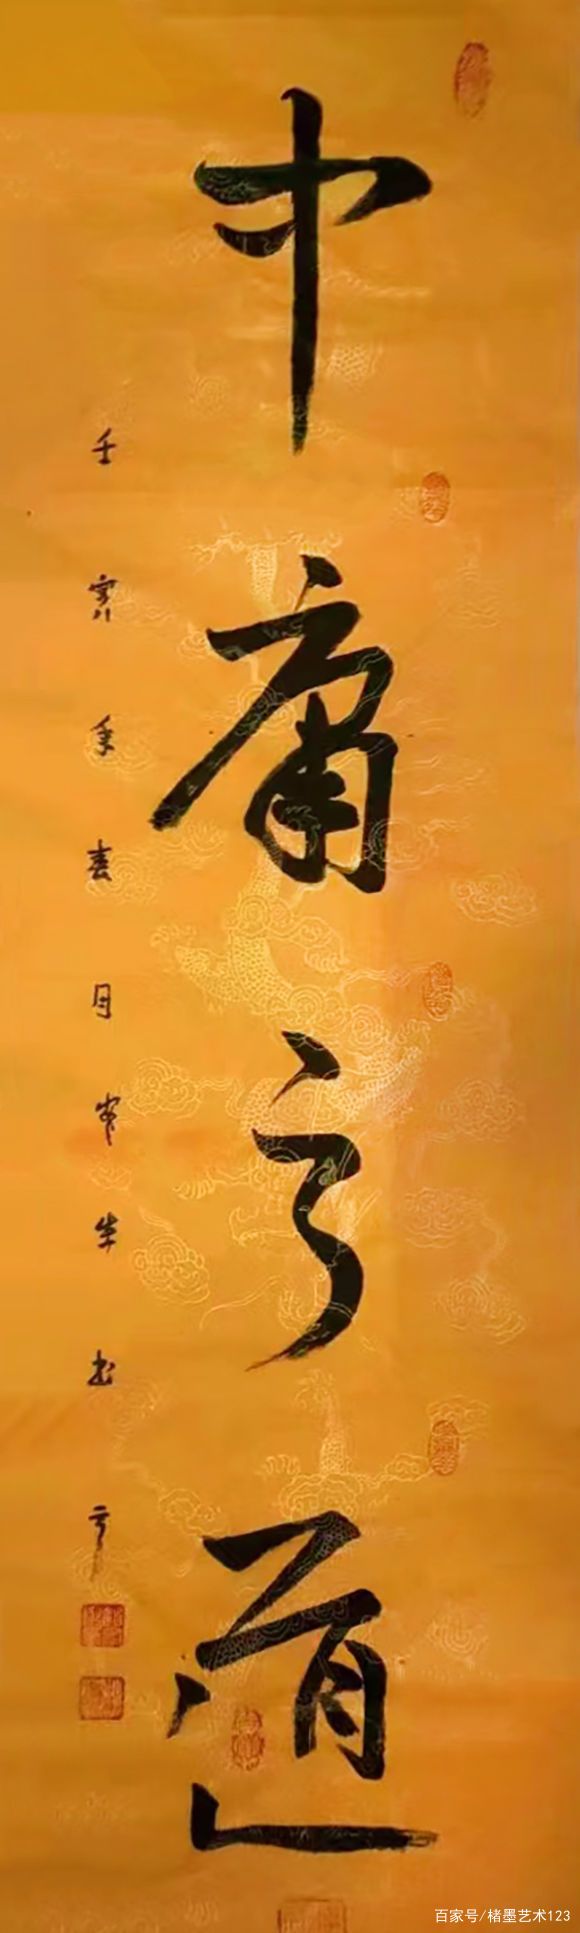 中庸之道
壬寅年春月牛书
百家号/楮墨艺术123